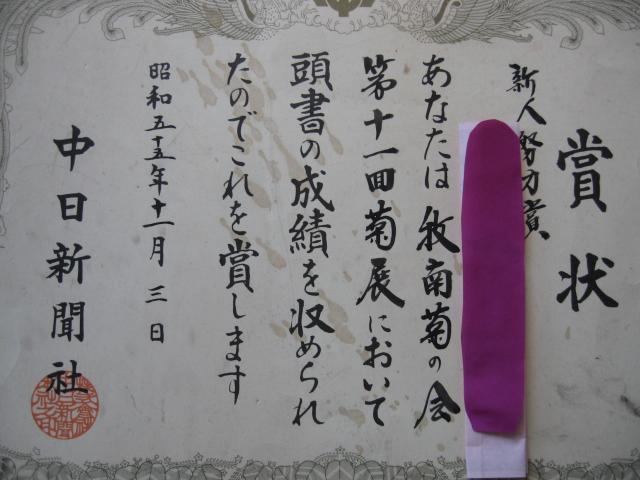 賞状
新人努力賞
あなたは牧南菊の会
第十一回菊展において
頭書の成績を収められ
たのでこれを賞します
昭和五十五年十一月三日
中日新聞社